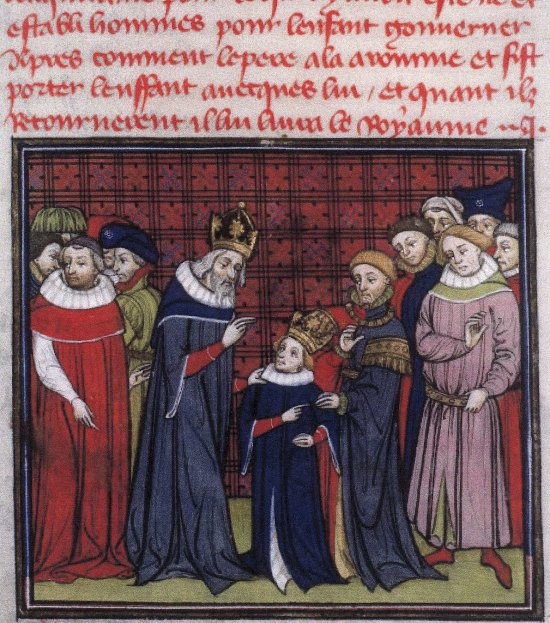 pour
establi hommes pour lenfant gouuerner
Apres comment lepere ala aromme et fist
porter lenffant auecques lui / et quant ilz
Retournerent il lui liura le Royaume